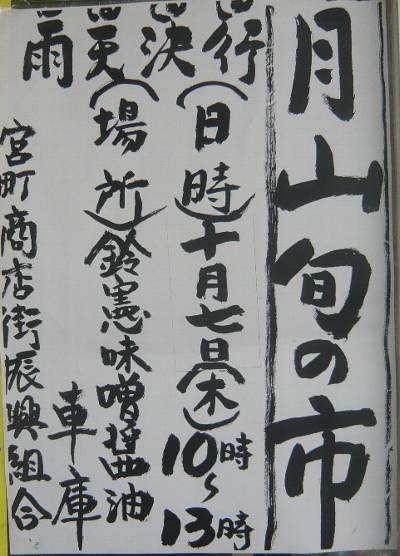 月山旬の市
(日時)十月七日(木)10時〜13時
(場所)鈴憲味噌醤油
車庫
宮町商店街振興組合
雨天決行